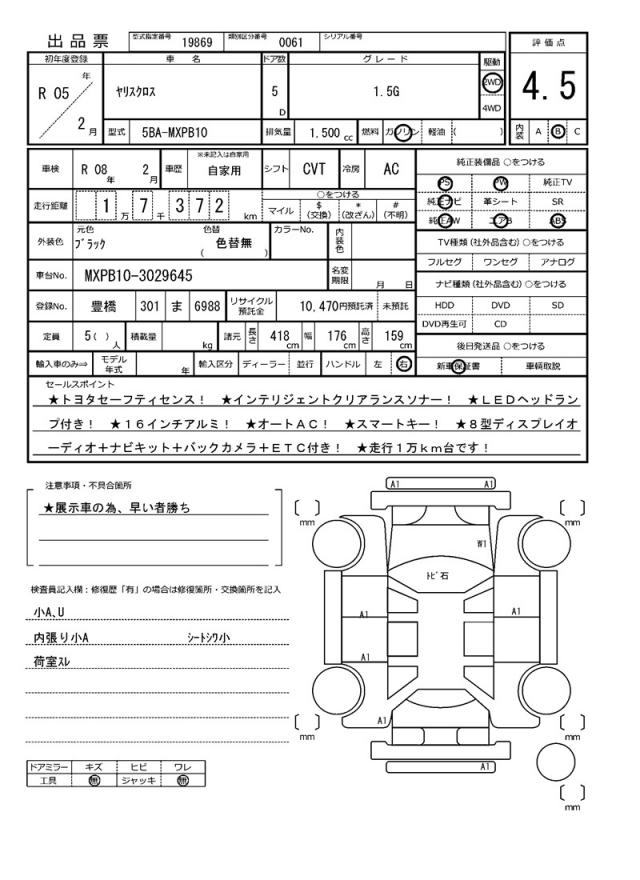 出品票 型式指定番号 19869 類別区分番号 0061 シリアル番号
初年度登録 車名 ドア数 グレード 駆動 評価点
R 05 年 2 月 ヤリスクロス 5 D 1.5G 2WD 4WD 4.5
型式 5BA-MXPB10 排気量 1.500 cc 燃料 ガソリン 軽油 ( ) 内装 A B C
車検 R 08 年 2 月 車歴 ※未記入は自家用 自家用 シフト CVT 冷房 AC
純正装備品 ○をつける
PS PW 純正TV
純正ナビ 革シート SR
純正AW エアB ABS
走行距離 1 万 7 千 3 7 2 km
○をつける
マイル $ (交換) * (改ざん) # (不明)
外装色 元色 ブラック 色替 色替無 ( ) カラーNo. 内装色
TV種類 (社外品含む) ○をつける
フルセグ ワンセグ アナログ
車台No. MXPB10-3029645 名変期限 月 日
ナビ種類 (社外品含む) ○をつける
HDD DVD SD
DVD再生可 CD
登録No. 豊橋 301 ま 6988 リサイクル預託金 10,470円預託済 未預託
定員 5( ) 人 積載量 kg 諸元 長さ 418 cm 幅 176 cm 高さ 159 cm
後日発送品 ○をつける
新車保証書 車輌取説
輸入車のみ⇒ モデル年式 年 輸入区分 ディーラー 並行 ハンドル 左 右
セールスポイント
★トヨタセーフティセンス! ★インテリジェントクリアランスソナー! ★LEDヘッドラン
プ付き! ★16インチアルミ! ★オートAC! ★スマートキー! ★8型ディスプレイオ
ーディオ+ナビキット+バックカメラ+ETC付き! ★走行1万km台です!
注意事項・不具合箇所
★展示車の為、早い者勝ち
検査員記入欄:修復歴「有」の場合は修復箇所・交換箇所を記入
小A、U
内張り小A シートシワ小
荷室スレ
ドアミラー キズ ヒビ ワレ
工具 無 ジャッキ 無
A1 A1
[ ] mm [ ] mm
W1
トビ石
A1 A1
A1
A1
[ ] mm [ ] mm
A1
[ ] mm